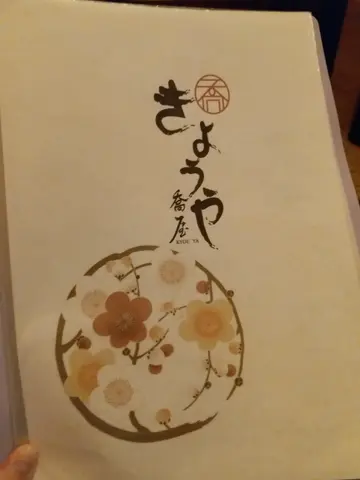 喬
きょうや
喬屋
KYOU YA